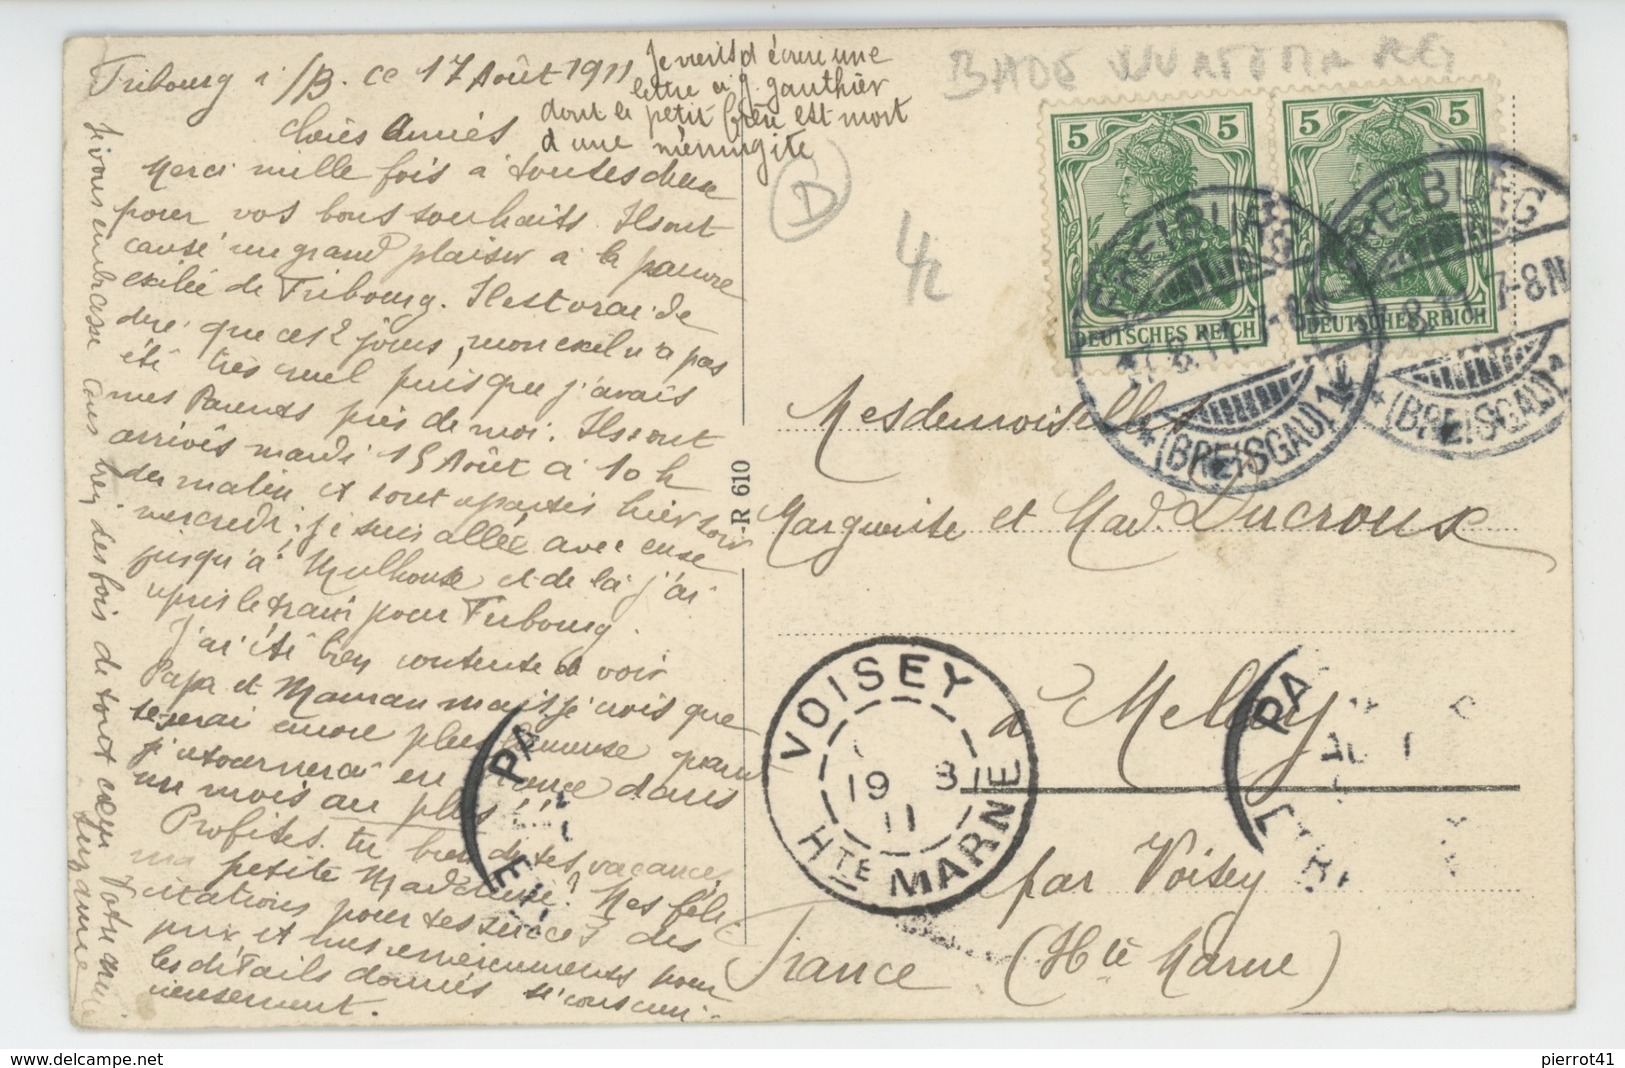 Fribourg i/B. ce 17 Août 1911
Je viens d écrire une
lettre à J. gauthier
dont le petit frère est mort
d une méningite
Chères Amies
Merci mille fois à toutes deux
pour vos bons souhaits. Ils ont
causé un grand plaisir à la pauvre
exilée de Fribourg. Il est vrai de
dire que ces 2 jours, mon exil n'a pas
été très cruel puisque j'avais
mes Parents près de moi. Ils sont
arrivés mardi 15 Août à 10 h
du matin et sont repartis hier soir
mercredi; je suis allée avec eux
jusqu'à Mulhouse et de là j'ai
repris le train pour Fribourg.
J'ai été bien contente de voir
Papa et Maman mais je crois que
je serai encore plus heureuse quand
j'retournerai en France dans
un mois au plus!!
Profites tu bien de tes vacances
ma petite Madeleine? Mes féli-
citations pour tes succès des
prix et mes remerciements pour
les détails donnés si conscien-
cieusement.
Je vous embrasse ainsi que des fois de tout cœur Votre amie
Suzanne
-R 610
D
BADE
5 5
DEUTSCHES REICH
5 5
DEUTSCHES REICH
FREIBURG
(BREISGAU) 1
FREIBURG
7-8N
(BREISGAU) 1
Mesdemoiselles
Marguerite et Mad. Ducroux
à Melay
par Voisey
(Hte Marne)
France
VOISEY
19 8
11
HTE MARNE
PA
PA
pierrot41